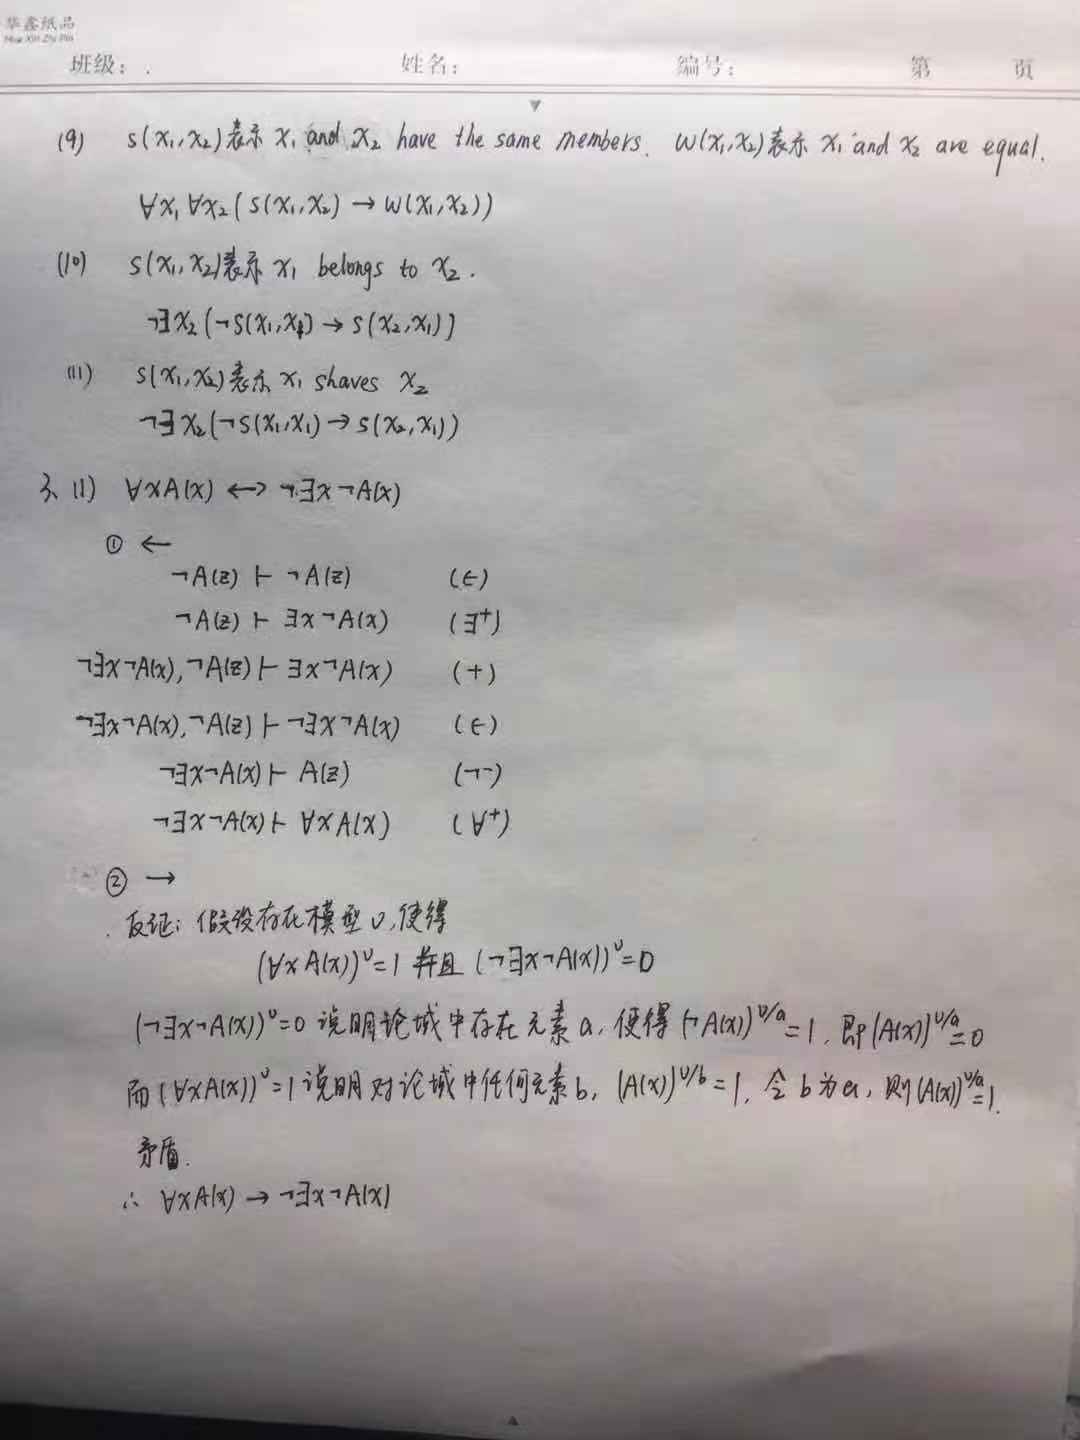 华鑫纸品
Hua Xin Zhi Pin
班级： 姓名： 编号： 第 页
(9) S(x₁,x₂)表示 x₁ and x₂ have the same members. W(x₁,x₂)表示 x₁ and x₂ are equal.
∀x₁∀x₂(S(x₁,x₂)→W(x₁,x₂))
(10) S(x₁,x₂)表示 x₁ belongs to x₂.
¬∃x₂(¬S(x₁,x₁)→S(x₂,x₁))
(11) S(x₁,x₂)表示 x₁ shaves x₂
¬∃x₂(¬S(x₁,x₁)→S(x₂,x₁))
3. (1) ∀xA(x)↔¬∃x¬A(x)
① ←
¬A(z)⊢¬A(z) (∈)
¬A(z)⊢∃x¬A(x) (∃⁺)
¬∃x¬A(x),¬A(z)⊢∃x¬A(x) (+)
¬∃x¬A(x),¬A(z)⊢¬∃x¬A(x) (∈)
¬∃x¬A(x)⊢A(z) (¬-)
¬∃x¬A(x)⊢∀xA(x) (∀⁺)
② →
反证：假设存在模型υ,使得
(∀xA(x))^υ=1 并且 (¬∃x¬A(x))^υ=0
(¬∃x¬A(x))^υ=0 说明论域中存在元素a, 使得(¬A(x))^υ/a=1, 即(A(x))^υ/a=0
而(∀xA(x))^υ=1说明对论域中任何元素b, (A(x))^υ/b=1, 令b为a, 则(A(x))^υ/a=1.
矛盾.
∴ ∀xA(x)→¬∃x¬A(x)